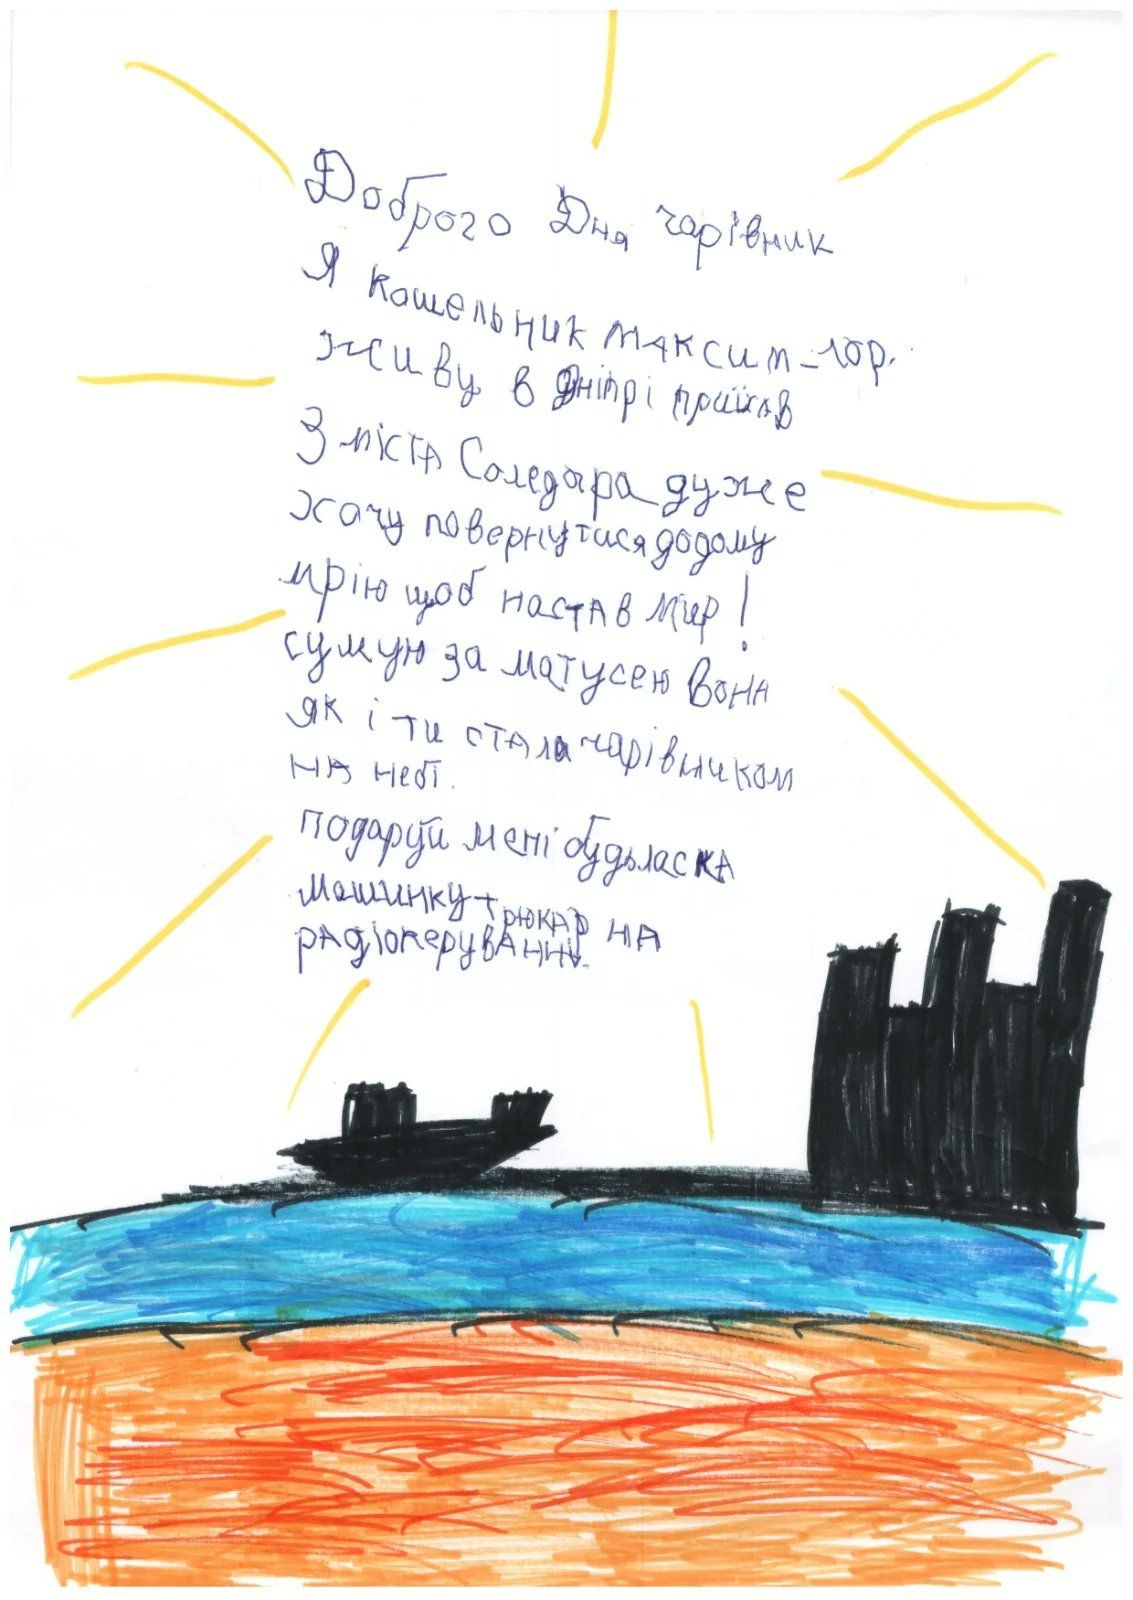 Доброго Дня чарівник
Я Кошельник Максим 10р.
живу в Дніпрі приїхав
З міста Соледара дуже
хочу повернутися додому
мрію щоб настав мир!
сумую за матусею вона
як і ти стала чарівником
на небі.
подаруй мені будьласка
машинку трюкар на
радіокеруванні.